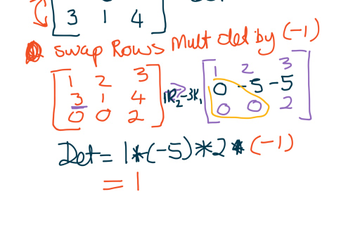 3 1 4
swap Rows Mult det by (-1)
1 2 3
3 1 4
0 0 2
1R₂-3R₁
1 2 3
0 -5 -5
0 0 2
Det = 1*(-5)*2*(-1)
= 1